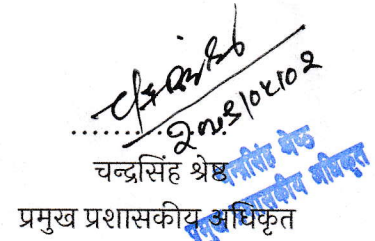 चन्द्रसिंह श्रेष्ठ
प्रमुख प्रशासकीय अधिकृत
चन्द्रसिंह श्रेष्ठ
प्रमुख प्रशासकीय अधिकृत